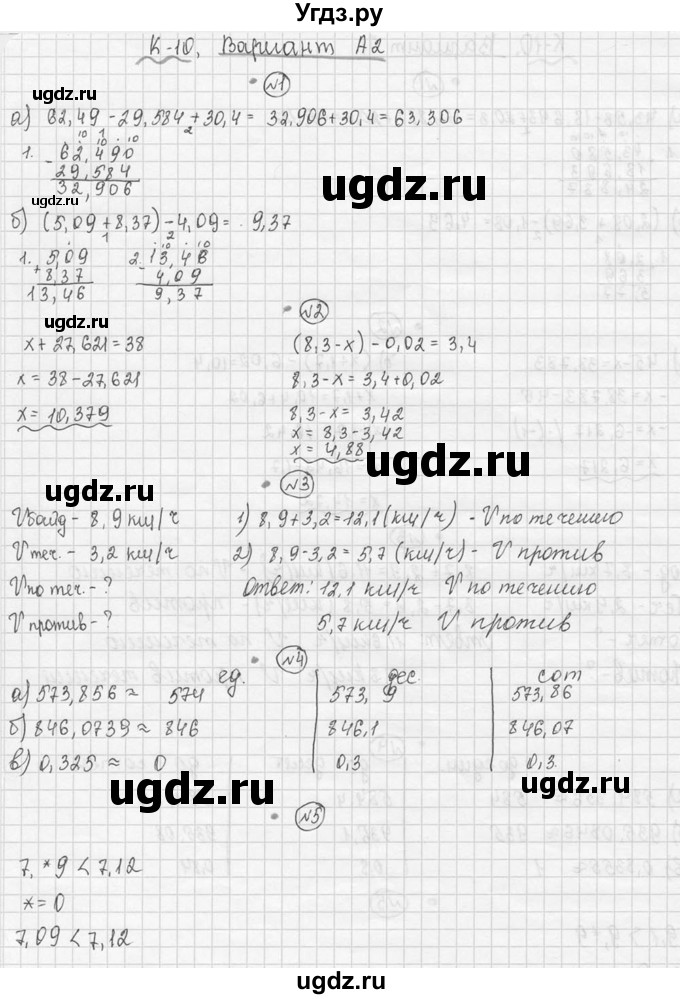 Угдз.ру
К-10, Вариант А2
№1
а) 62,49 - 29,584 + 30,4 = 32,906 + 30,4 = 63,306
1. 62,490
- 29,584
32,906
б) (5,09 + 8,37) - 4,09 = 9,37
1. 5,09
+ 8,37
13,46
2. 13,46
- 4,09
9,37
№2
x + 27,621 = 38
x = 38 - 27,621
x = 10,379
(8,3 - x) - 0,02 = 3,4
8,3 - x = 3,4 + 0,02
8,3 - x = 3,42
x = 8,3 - 3,42
x = 4,88
№3
V байд - 8,9 км/ч
V теч. - 3,2 км/ч
V по теч. - ?
V против - ?
1) 8,9 + 3,2 = 12,1 (км/ч) - V по течению
2) 8,9 - 3,2 = 5,7 (км/ч) - V против
Ответ: 12,1 км/ч V по течению
5,7 км/ч V против
№4
ед. дес. сот
а) 573,856 ≈ 574 573,9 573,86
б) 846,0739 ≈ 846 846,1 846,07
в) 0,325 ≈ 0 0,3 0,3
№5
7,*9 < 7,12
* = 0
7,09 < 7,12
ugdz.ru
ugdz.ru
ugdz.ru
ugdz.ru
ugdz.ru
ugdz.ru
ugdz.ru
ugdz.ru
ugdz.ru
ugdz.ru
ugdz.ru
ugdz.ru